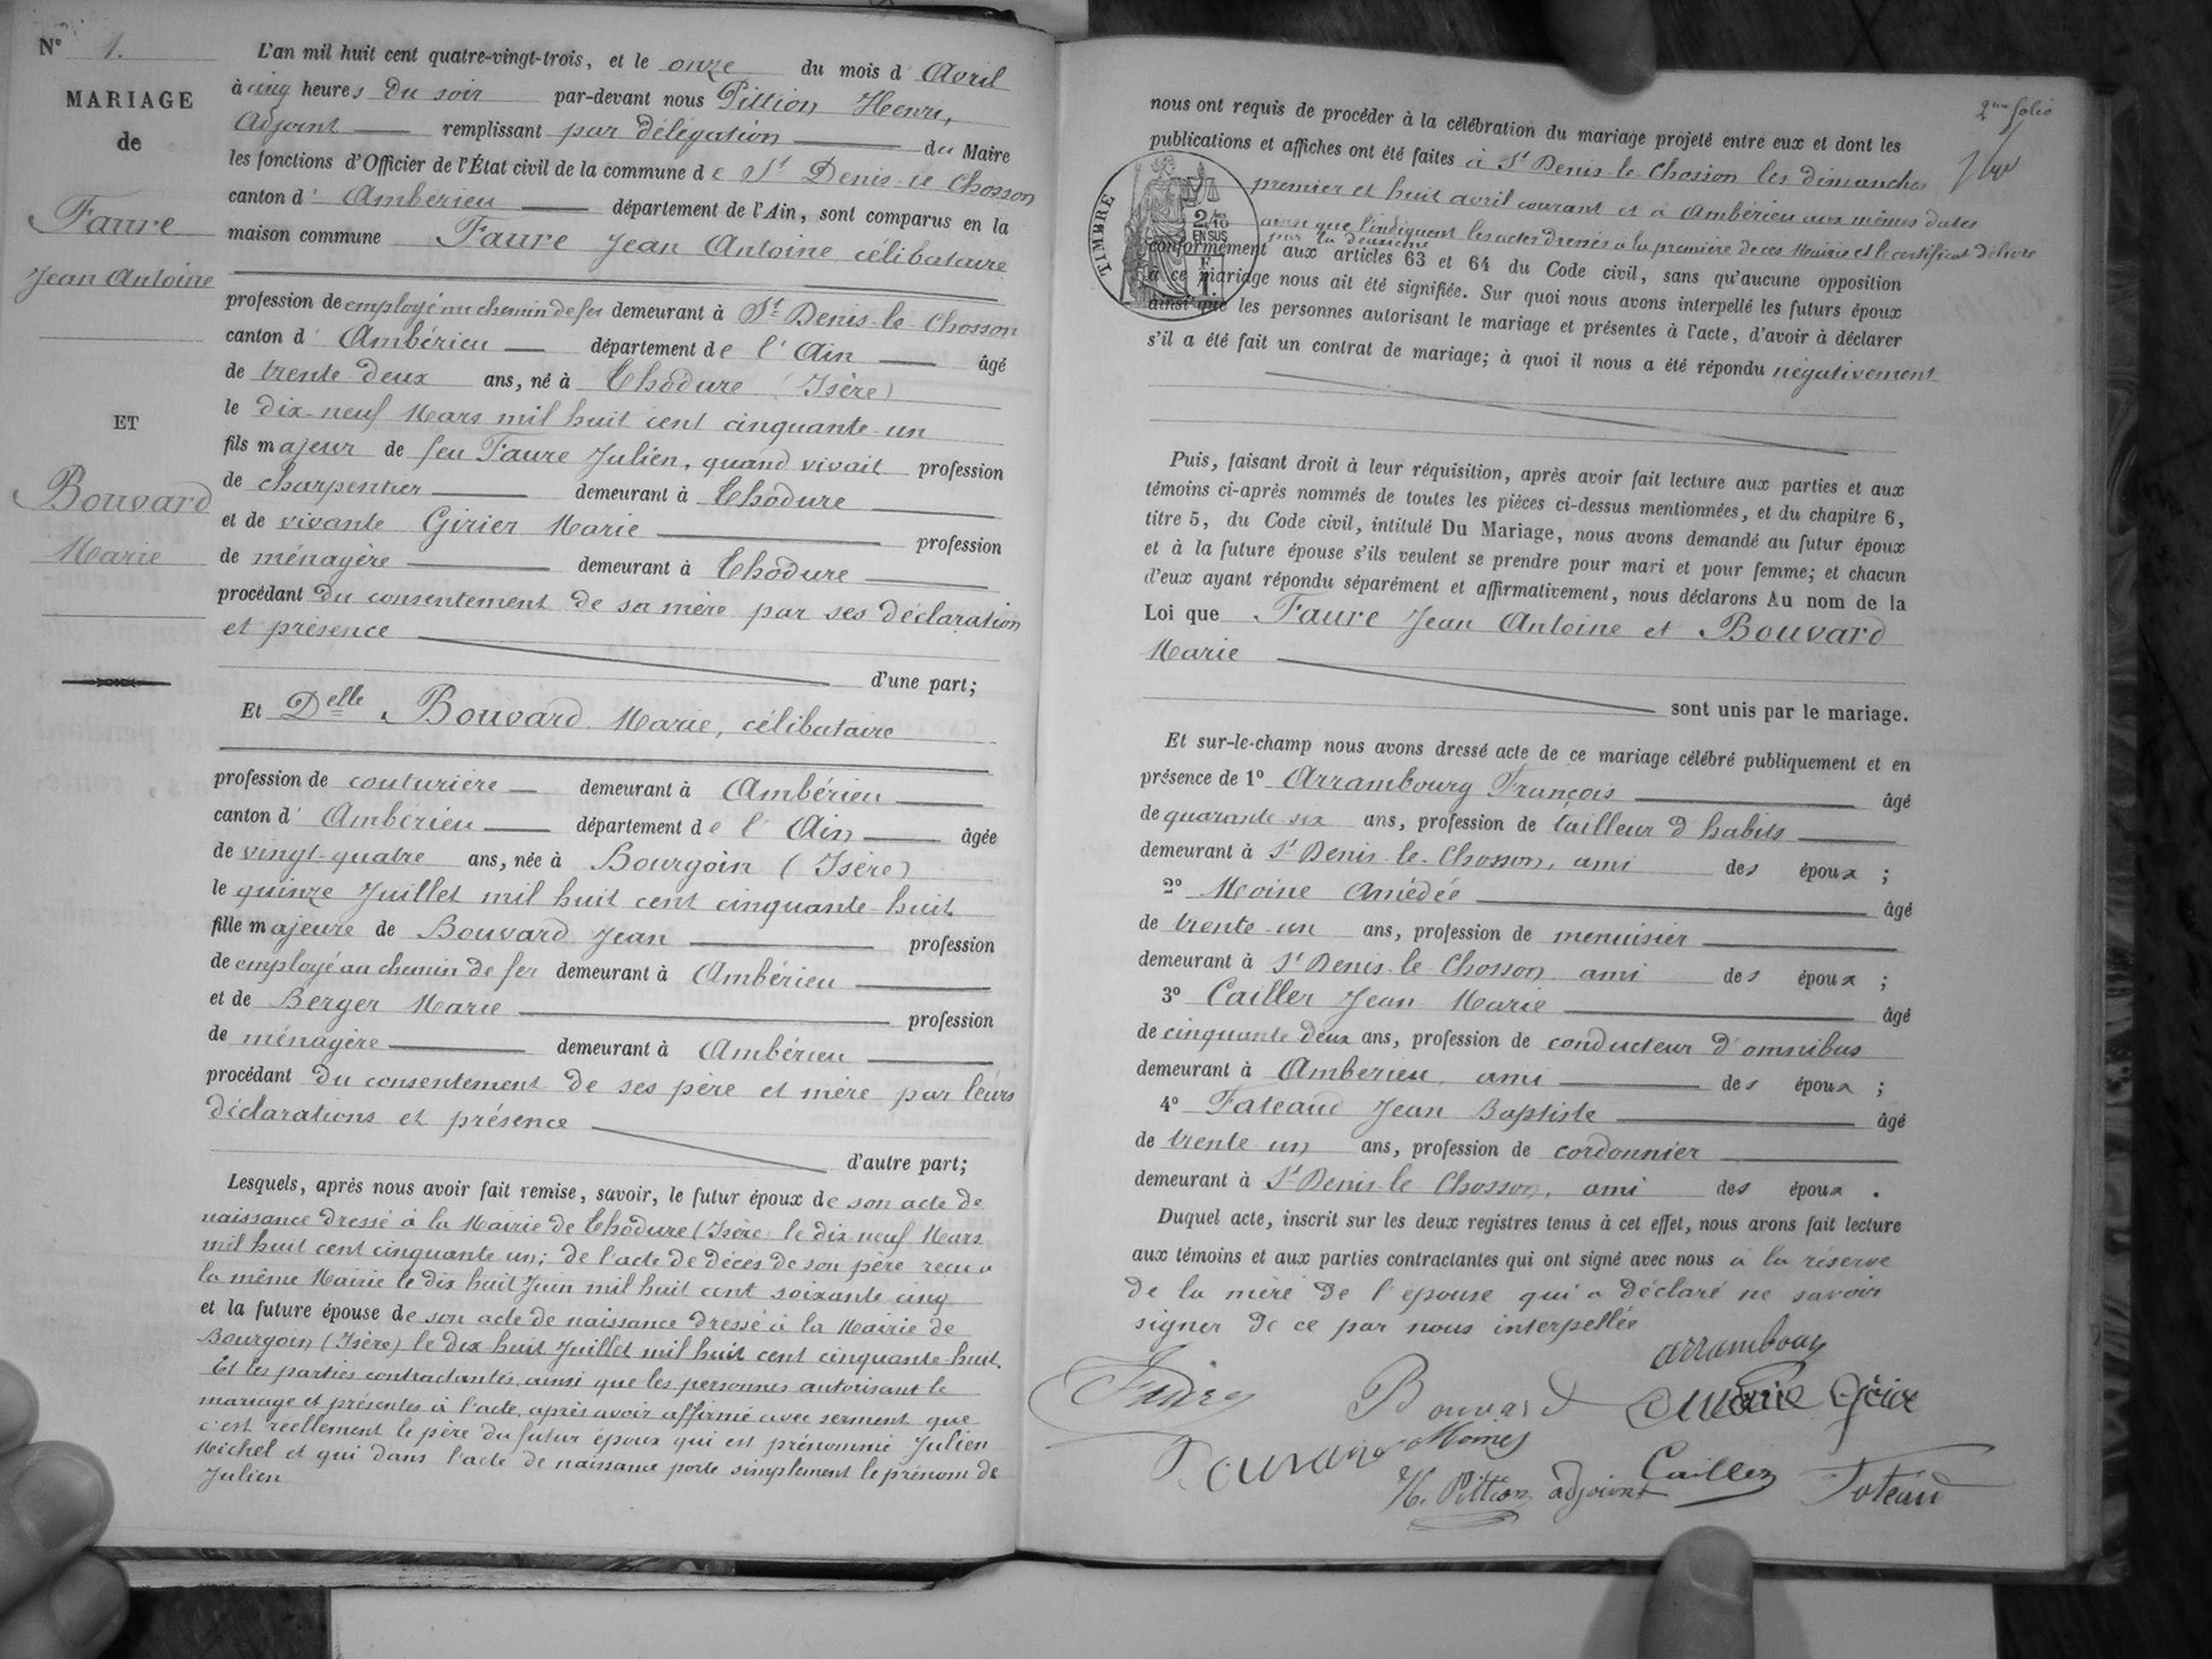 N° 1.
MARIAGE
de
Faure
Jean Antoine
ET
Bouvard
Marie
L'an mil huit cent quatre-vingt-trois, et le onze du mois d'Avril
à cinq heures du soir par-devant nous Pittion Henri,
Adjoint remplissant par délégation du Maire
les fonctions d'Officier de l'État civil de la commune de St Denis-le Chosson
canton d'Ambérieu département de l'Ain, sont comparus en la
maison commune Faure Jean Antoine, célibataire
profession de employé au chemin de fer demeurant à St Denis-le-Chosson
canton d'Ambérieu département de l'Ain âgé
de trente-deux ans, né à Thodure (Isère)
le dix-neuf Mars mil huit cent cinquante-un
fils majeur de feu Faure Julien, quand vivait profession
de charpentier demeurant à Thodure
et de vivante Girier Marie profession
de ménagère demeurant à Thodure
procédant du consentement de sa mère par ses déclaration
et présence
d'une part;
Et Delle Bouvard Marie, célibataire
profession de couturière demeurant à Ambérieu
canton d'Ambérieu département de l'Ain âgée
de vingt-quatre ans, née à Bourgoin (Isère)
le quinze Juillet mil huit cent cinquante-huit
fille majeure de Bouvard Jean profession
de employé au chemin de fer demeurant à Ambérieu
et de Berger Marie profession
de ménagère demeurant à Ambérieu
procédant du consentement de ses père et mère par leurs
déclarations et présence
d'autre part;
Lesquels, après nous avoir fait remise, savoir, le futur époux de son acte de
naissance dressé à la Mairie de Thodure (Isère) le dix-neuf Mars
mil huit cent cinquante un; de l'acte de décès de son père reçu à
la même Mairie le dix huit Juin mil huit cent soixante cinq
et la future épouse de son acte de naissance dressé à la Mairie de
Bourgoin (Isère) le dix-huit Juillet mil huit cent cinquante-huit.
Et les parties contractantes ainsi que les personnes autorisant le
mariage et présentes à l'acte, après avoir affirmé avec serment que
c'est réellement le père du futur époux qui est prénommé Julien
Michel et qui dans l'acte de naissance porte simplement le prénom de
Julien
2me folio
nous ont requis de procéder à la célébration du mariage projeté entre eux et dont les
publications et affiches ont été faites à St Denis-le-Chosson les dimanches
premier et huit avril courant et à Ambérieu aux mêmes dates
ainsi que l'indiquent les actes dressés à la première de ces Mairies et le certificat délivré
par la deuxième
conformément aux articles 63 et 64 du Code civil, sans qu'aucune opposition
à ce mariage nous ait été signifiée. Sur quoi nous avons interpellé les futurs époux
ainsi que les personnes autorisant le mariage et présentes à l'acte, d'avoir à déclarer
s'il a été fait un contrat de mariage; à quoi il nous a été répondu négativement
TIMBRE
2/10
EN SUS
Puis, faisant droit à leur réquisition, après avoir fait lecture aux parties et aux
témoins ci-après nommés de toutes les pièces ci-dessus mentionnées, et du chapitre 6,
titre 5, du Code civil, intitulé Du Mariage, nous avons demandé au futur époux
et à la future épouse s'ils veulent se prendre pour mari et pour femme; et chacun
d'eux ayant répondu séparément et affirmativement, nous déclarons Au nom de la
Loi que Faure Jean Antoine et Bouvard
Marie
sont unis par le mariage.
Et sur-le-champ nous avons dressé acte de ce mariage célébré publiquement et en
présence de 1° Arrambourg François âgé
de quarante-six ans, profession de tailleur d'habits
demeurant à St Denis-le-Chosson, ami des époux;
2° Moine Amédée âgé
de trente-un ans, profession de menuisier
demeurant à St Denis-le-Chosson ami des époux;
3° Cailler Jean Marie âgé
de cinquante deux ans, profession de conducteur d'omnibus
demeurant à Ambérieu, ami des époux;
4° Fateaud Jean Baptiste âgé
de trente un ans, profession de cordonnier
demeurant à St Denis-le-Chosson, ami des époux.
Duquel acte, inscrit sur les deux registres tenus à cet effet, nous avons fait lecture
aux témoins et aux parties contractantes qui ont signé avec nous à la réserve
de la mère de l'épouse qui a déclaré ne savoir
signer de ce par nous interpellée
arrambourg
Bouvard
H. Pittion, adjoint
Cailler
Fateaud